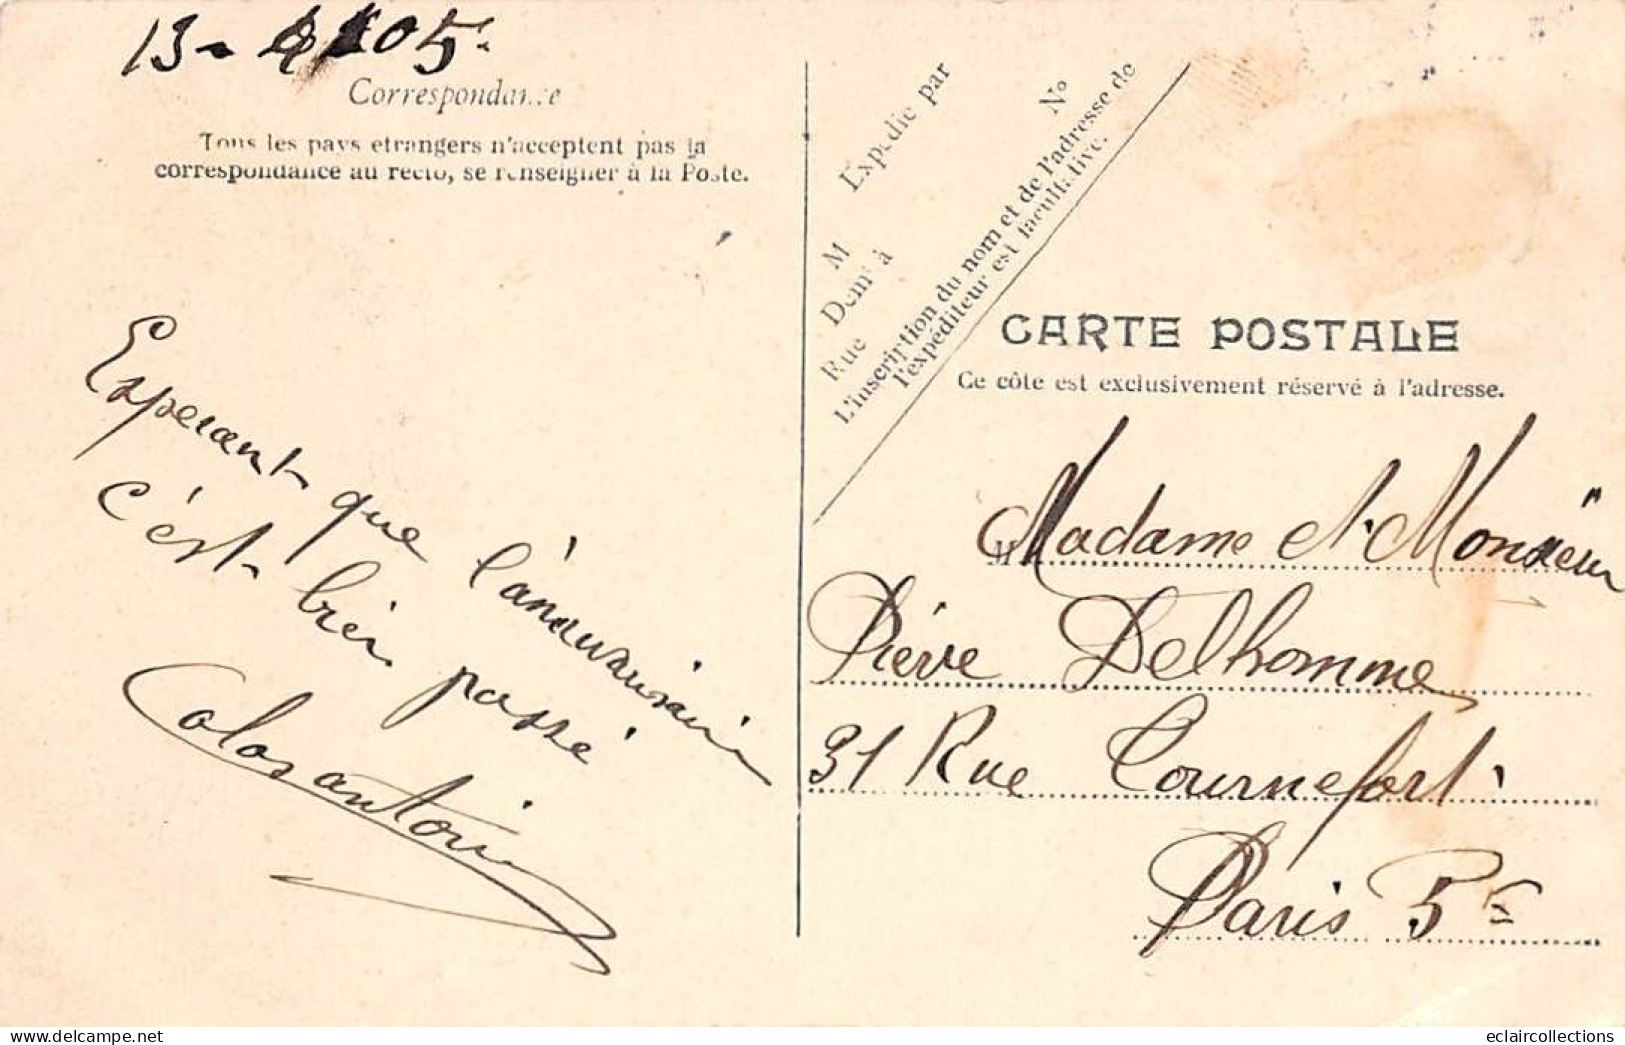 13-4-05.
Correspondance
Tous les pays etrangers n'acceptent pas la
correspondance au recto, se renseigner à la Poste.
Esperant que l'annivaire
c'est bien passé
Expedie par
M
Demt à
Rue No
L'inscription du nom et de l'adresse de
l'expéditeur est facultative.
CARTE POSTALE
Ce côte est exclusivement réservé à l'adresse.
M Madame et Monsieur
Pierre Delhomme
31 Rue Tournefort
Paris 5e
eclaircollections